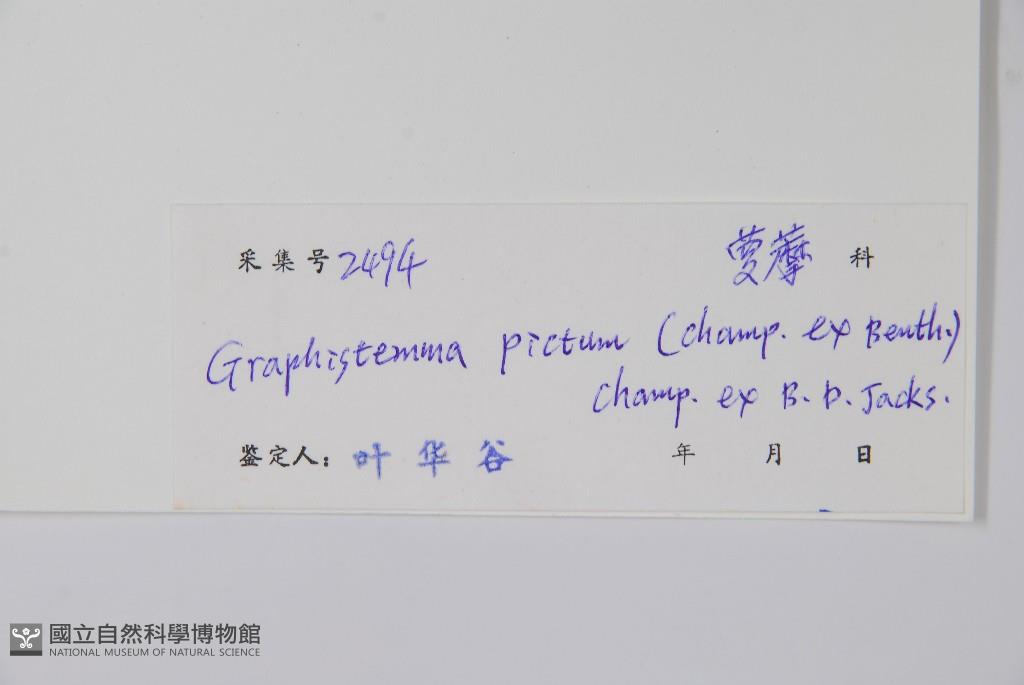 采集号 2494 萝藦 科
Graphistemma pictum (Champ. ex Benth.)
Champ. ex B. D. Jacks.
鉴定人: 叶华谷 年 月 日
國立自然科學博物館
NATIONAL MUSEUM OF NATURAL SCIENCE